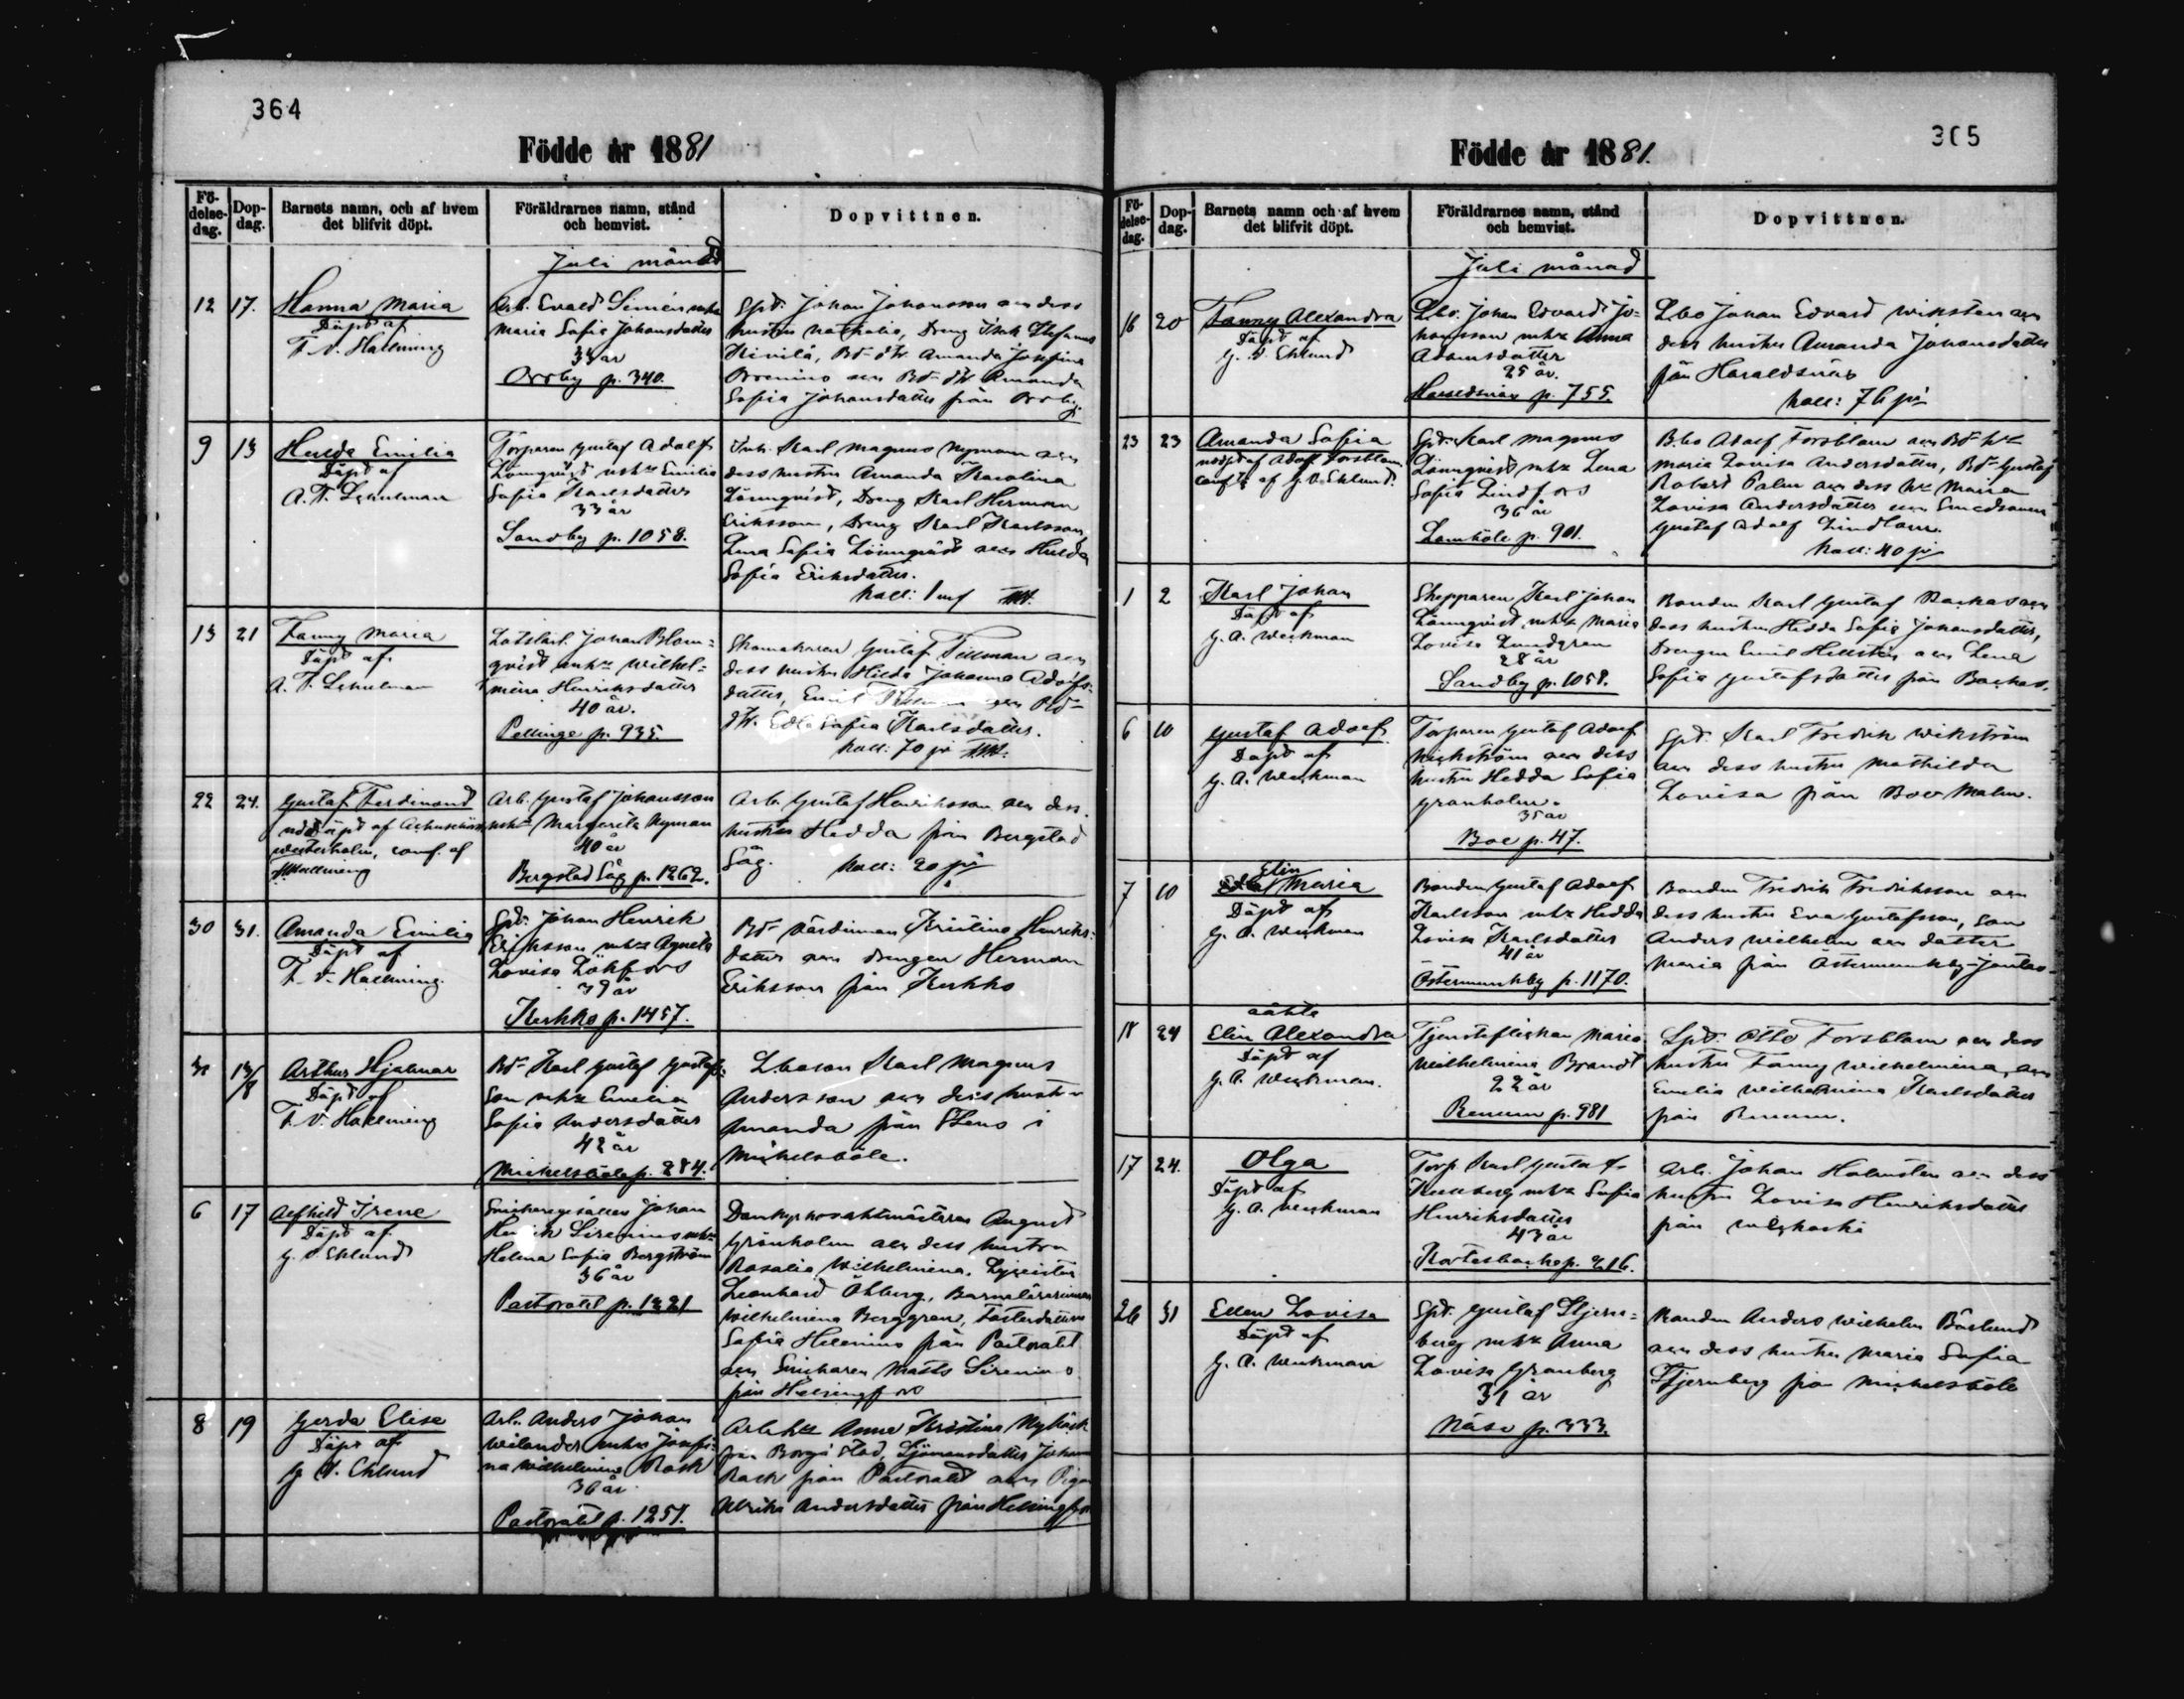 364
Födde år 1881
Fö-
delse-
dag.
Dop-
dag.
Barnets namn, och af hvem
det blifvit döpt.
Föräldrarnes namn, stånd
och hemvist.
Dopvittnen.
Juli månad
12 17.
Hanna Maria
Döpt af
F. V. Hallming
Arb. Evald Simén
Maria Sofia Johansdatter
33 år
Orrby p. 340.
Spd. Johan Johansson dess
hustru Nathalia, Dreng Stefanus
Kivilä, Bd. dtr Amanda Josefina
Bd. dtr Amanda
Sofia Johansdatter från Orrby.
9 13
Hulda Emilia
Döpt af
A. F. Schulman
Torparen Gustaf Adolf
Lönnqvist Emilia
Sofia Karlsdatter
33 år
Sandby p. 1058.
Inh. Karl Magnus Nyman
dess hustru Amanda Karolina
Lönnqvist, Dreng Karl Herman
Eriksson, Dreng Karl Karlsson,
Lena Sofia Lönnqvist Hulda
Sofia Eriksdatter.
koll: 1 mf
13 21
Fanny Maria
Döpt af
A. F. Schulman
Johan Blom-
qvist Wilhel-
mina Henriksdatter
40 år.
Pellinge p. 935.
Skomakaren Gustaf Tillman
dess hustru Hilda Johanna Adolfs-
datter, Emil
dtr. Edla Sofia Karlsdatter.
koll: 70 pi
22 24.
Gustaf Ferdinand
nöddöpt af
Westerholm, conf. af
Hallming
Arb. Gustaf Johansson
Margareta Nyman
40 år
Bergstad Såg p. 1262.
Arb. Gustaf Henriksson dess
hustru Hedda från Bergstad
Såg. koll: 20 pi
30 31.
Amanda Emilia
Döpt af
F. V. Hallming.
Spd. Johan Henrik
Eriksson Agneta
Lovisa Löhfors
39 år
Kerkko p. 1457.
Bd. värdinnan Kristina Henriks-
datter drengen Herman
Eriksson från Kerkko
31 13/8
Arthur Hjalmar
Döpt af
F. V. Hallming
Bd. Karl Gustaf Gustafs-
son Emilia
Sofia Andersdatter
42 år
Mickelsböle p. 284.
Lboson Karl Magnus
Andersson dess hustru
Amanda från Stens i
Mickelsböle.
6 17
Alfhild Irene
Döpt af
G. V. Eklund
Johan
Henrik Sirenius
Helena Sofia Bergström
36 år
Pastoratet p. 1221
Domkyrkovaktmästaren August
Grönholm dess hustru
Rosalia Wilhelmina,
Leonhard Öhberg, Barnalärarinnan
Wilhelmina Berggren, Fosterdottern
Sofia Helenius från Pastoratet
Snickaren Matts Sirenius
från Helsingfors
8 19
Gerda Elise
Döpt af
G. V. Eklund
Arb. Anders Johan
Welander Josefi-
na Wilhelmina Rask
36 år
Pastoratet p. 1251.
Arb. Anna Kristina
från Borgå Stad, Johanna
Rask från Pastoratet Pigan
Ulrika Andersdatter från Helsingfors
305
Födde år 1881.
Fö-
delse-
dag.
Dop-
dag.
Barnets namn och af hvem
det blifvit döpt.
Föräldrarnes namn, stånd
och hemvist.
Dopvittnen.
Juli månad
16 20
Fanny Alexandra
Döpt af
G. V. Eklund
Lbo. Johan Edvard Jo-
hansson Anna
Adamsdatter
25 år.
Haraldsnäs p. 755.
Lbo Johan Edvard Winsten
dess hustru Amanda Johansdatter
från Haraldsnäs
koll: 76 pi
23 23
Amanda Sofia
nöddpt af Adolf Forsblom
conft. af G. V. Eklund.
Spd. Karl Magnus
Lönnqvist Lena
Sofia Lindfors
36 år
p. 901.
B.bo Adolf Forsblom
Maria Lovisa Andersdatter, Bd. Gustaf
Robert Palm dess Maria
Lovisa Andersdatter Smedsonen
Gustaf Adolf Lindlom.
koll: 40 pi
1 2
Karl Johan
Döpt af
G. A. Weckman
Skepparen Karl Johan
Lönnqvist Maria
Lovisa Lundgren
28 år
Sandby p. 1058.
Bonden Karl Gustaf Backas
dess hustru Hedda Sofia Johansdatter,
Drengen Emil Hellsten Lena
Sofia Gustafsdatter från Backas.
6 10
Gustaf Adolf
Döpt af
G. A. Weckman
Torparen Gustaf Adolf
Weckström dess
hustru Hedda Sofia
Granholm.
35 år
Boe p. 47.
Spd. Karl Fredrik Wikström
dess hustru Mathilda
Lovisa från Boe Malm.
7 10
Elin
Edla Maria
Döpt af
G. A. Weckman
Bonden Gustaf Adolf
Karlsson Hedda
Lovisa Karlsdatter
41 år
Östermunkby p. 1170.
Bonden Fredrik Fredriksson
dess hustru Eva Gustafsson, son
Anders Wilhelm datter
Maria från Östermunkby
18 24
oäkta
Elin Alexandra
Döpt af
G. A. Weckman.
Tjensteflickan Maria
Wilhelmina Brandt
22 år
Renum p. 981
Spd. Otto Forsblom dess
hustru Fanny Wilhelmina,
Emilia Wilhelmina Karlsdatter
från Renum.
17 24.
Olga
Döpt af
G. A. Weckman
Torp. Karl Gustaf
Kullberg Sofia
Henriksdatter
43 år
p. 216.
Arb. Johan Holmsten dess
hustru Lovisa Henriksdatter
från
26 31
Ellen Lovisa
Döpt af
G. A. Weckman
Spd. Gustaf Stjern-
berg Anna
Lovisa Granberg
31 år
Näse p. 333.
Bonden Anders Wilhelm Bärlund
dess hustru Maria Sofia
Stjernberg från Mickelsböle